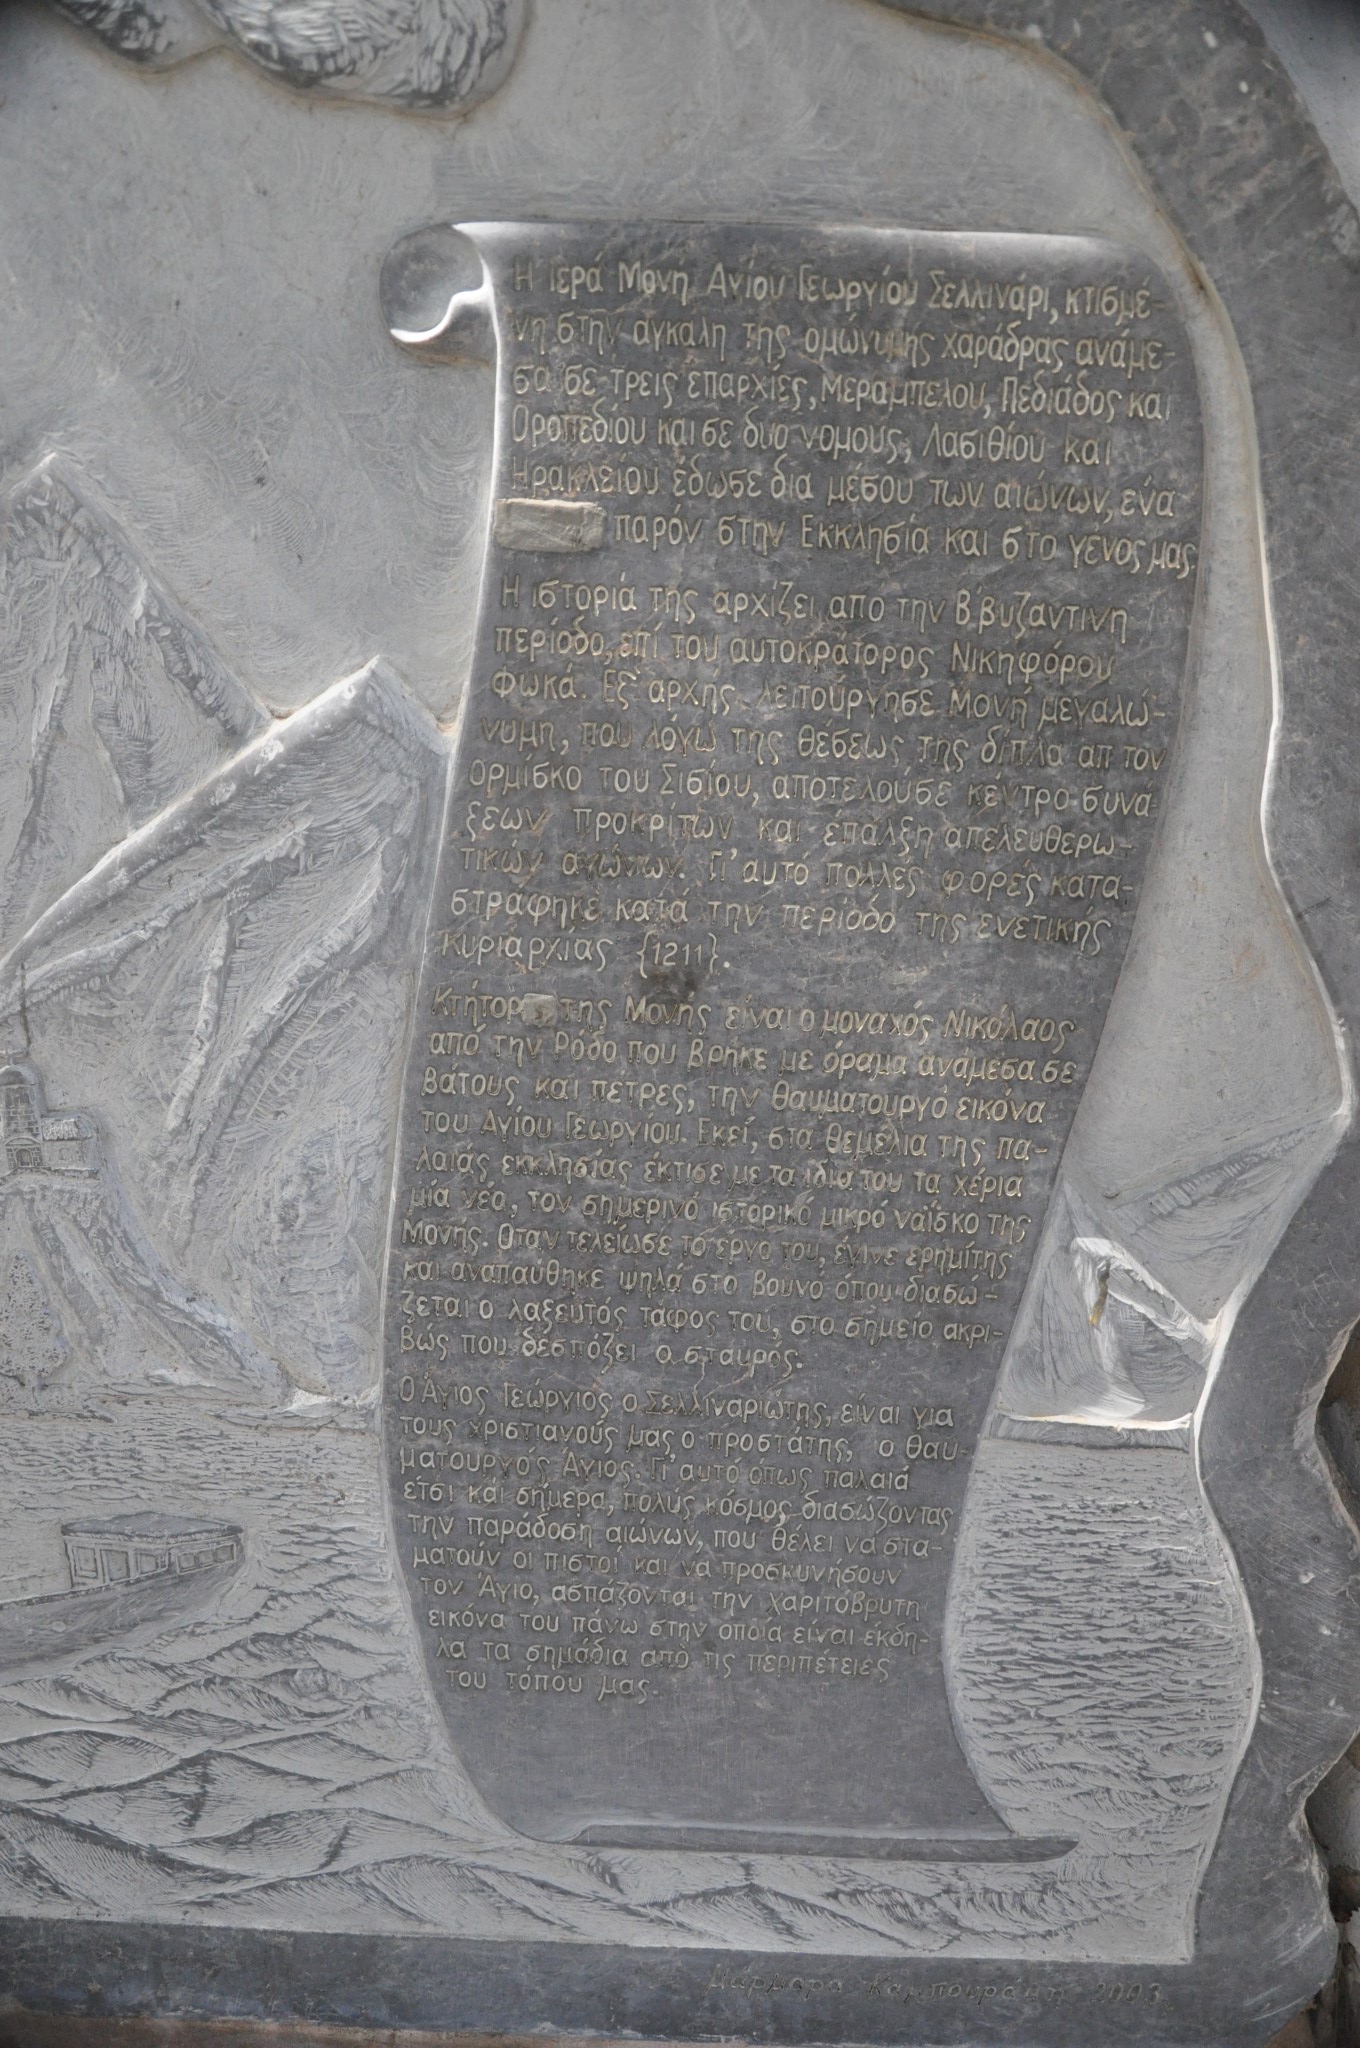 Η ιερά Μονή Αγίου Γεωργίου Σελλινάρι, κτισμέ-
νη στην αγκαλη της ομώνυμης χαράδρας ανάμε-
σα σε τρεις επαρχίες, Μεραμπελου, Πεδιάδος και
Οροπεδίου και σε δυο νομούς, Λασιθίου και
Ηρακλείου έδωσε δια μέσου των αιώνων, ενα
παρόν στην Εκκλησία και στο γένος μας.
Η ιστοριά της αρχίζει απο την Β΄βυζαντινη
περίοδο, επί του αυτοκράτορος Νικηφόρου
Φωκά. Εξ΄αρχής λειτούργησε Μονή μεγαλώ-
νυμη, που λόγω της θέσεως της δίπλα απ τον
ορμίσκο του Σισίου, αποτελούσε κέντρο συνα-
ξεων προκρίτων και επάλξη απελευθερω-
τικών αγώνων. Γι΄αυτό πολλές φορές κατα-
στράφηκε κατά την περίοδο της ενετικής
κυριαρχίας {1211}.
Κτήτορ της Μονής είναι ο μοναχός Νικόλαος
από την Ρόδο που βρήκε με όραμα αναμεσα σε
βάτους και πετρες, την θαυματουργό εικόνα
του Αγίου Γεωργίου. Εκεί, στα θεμέλια της πα-
λαιάς εκκλησίας έκτισε με τα ίδια του τα χέρια
μία νέο, τον σημερινό ιστορικό μικρό ναΐσκο της
Μονής. Οταν τελείωσε το έργο του, έγινε ερημίτης
και αναπαύθηκε ψηλά στο βουνό όπου διασώ-
ζεται ο λαξευτός τάφος του, στο σημείο ακρι-
βώς που δεσπόζει ο σταυρός.
Ο Άγιος Γεώργιος ο Σελλιναριώτης, είναι για
τους χριστιανούς μας ο προστάτης, ο θαυ-
ματουργός Άγιος. Γι΄αυτό όπως παλαιά
έτσι και σήμερα, πολύς κόσμος διασώζοντας
την παράδοση αιώνων, που θέλει να στα-
ματούν οι πιστοί και να προσκυνήσουν
τον Άγιο, ασπάζονται την χαριτόβρυτη
εικόνα του πάνω στην οποία είναι έκδη-
λα τα σημάδια από τις περιπέτειες
του τόπου μας.
Μάρμαρα Καμπουράκη 2003